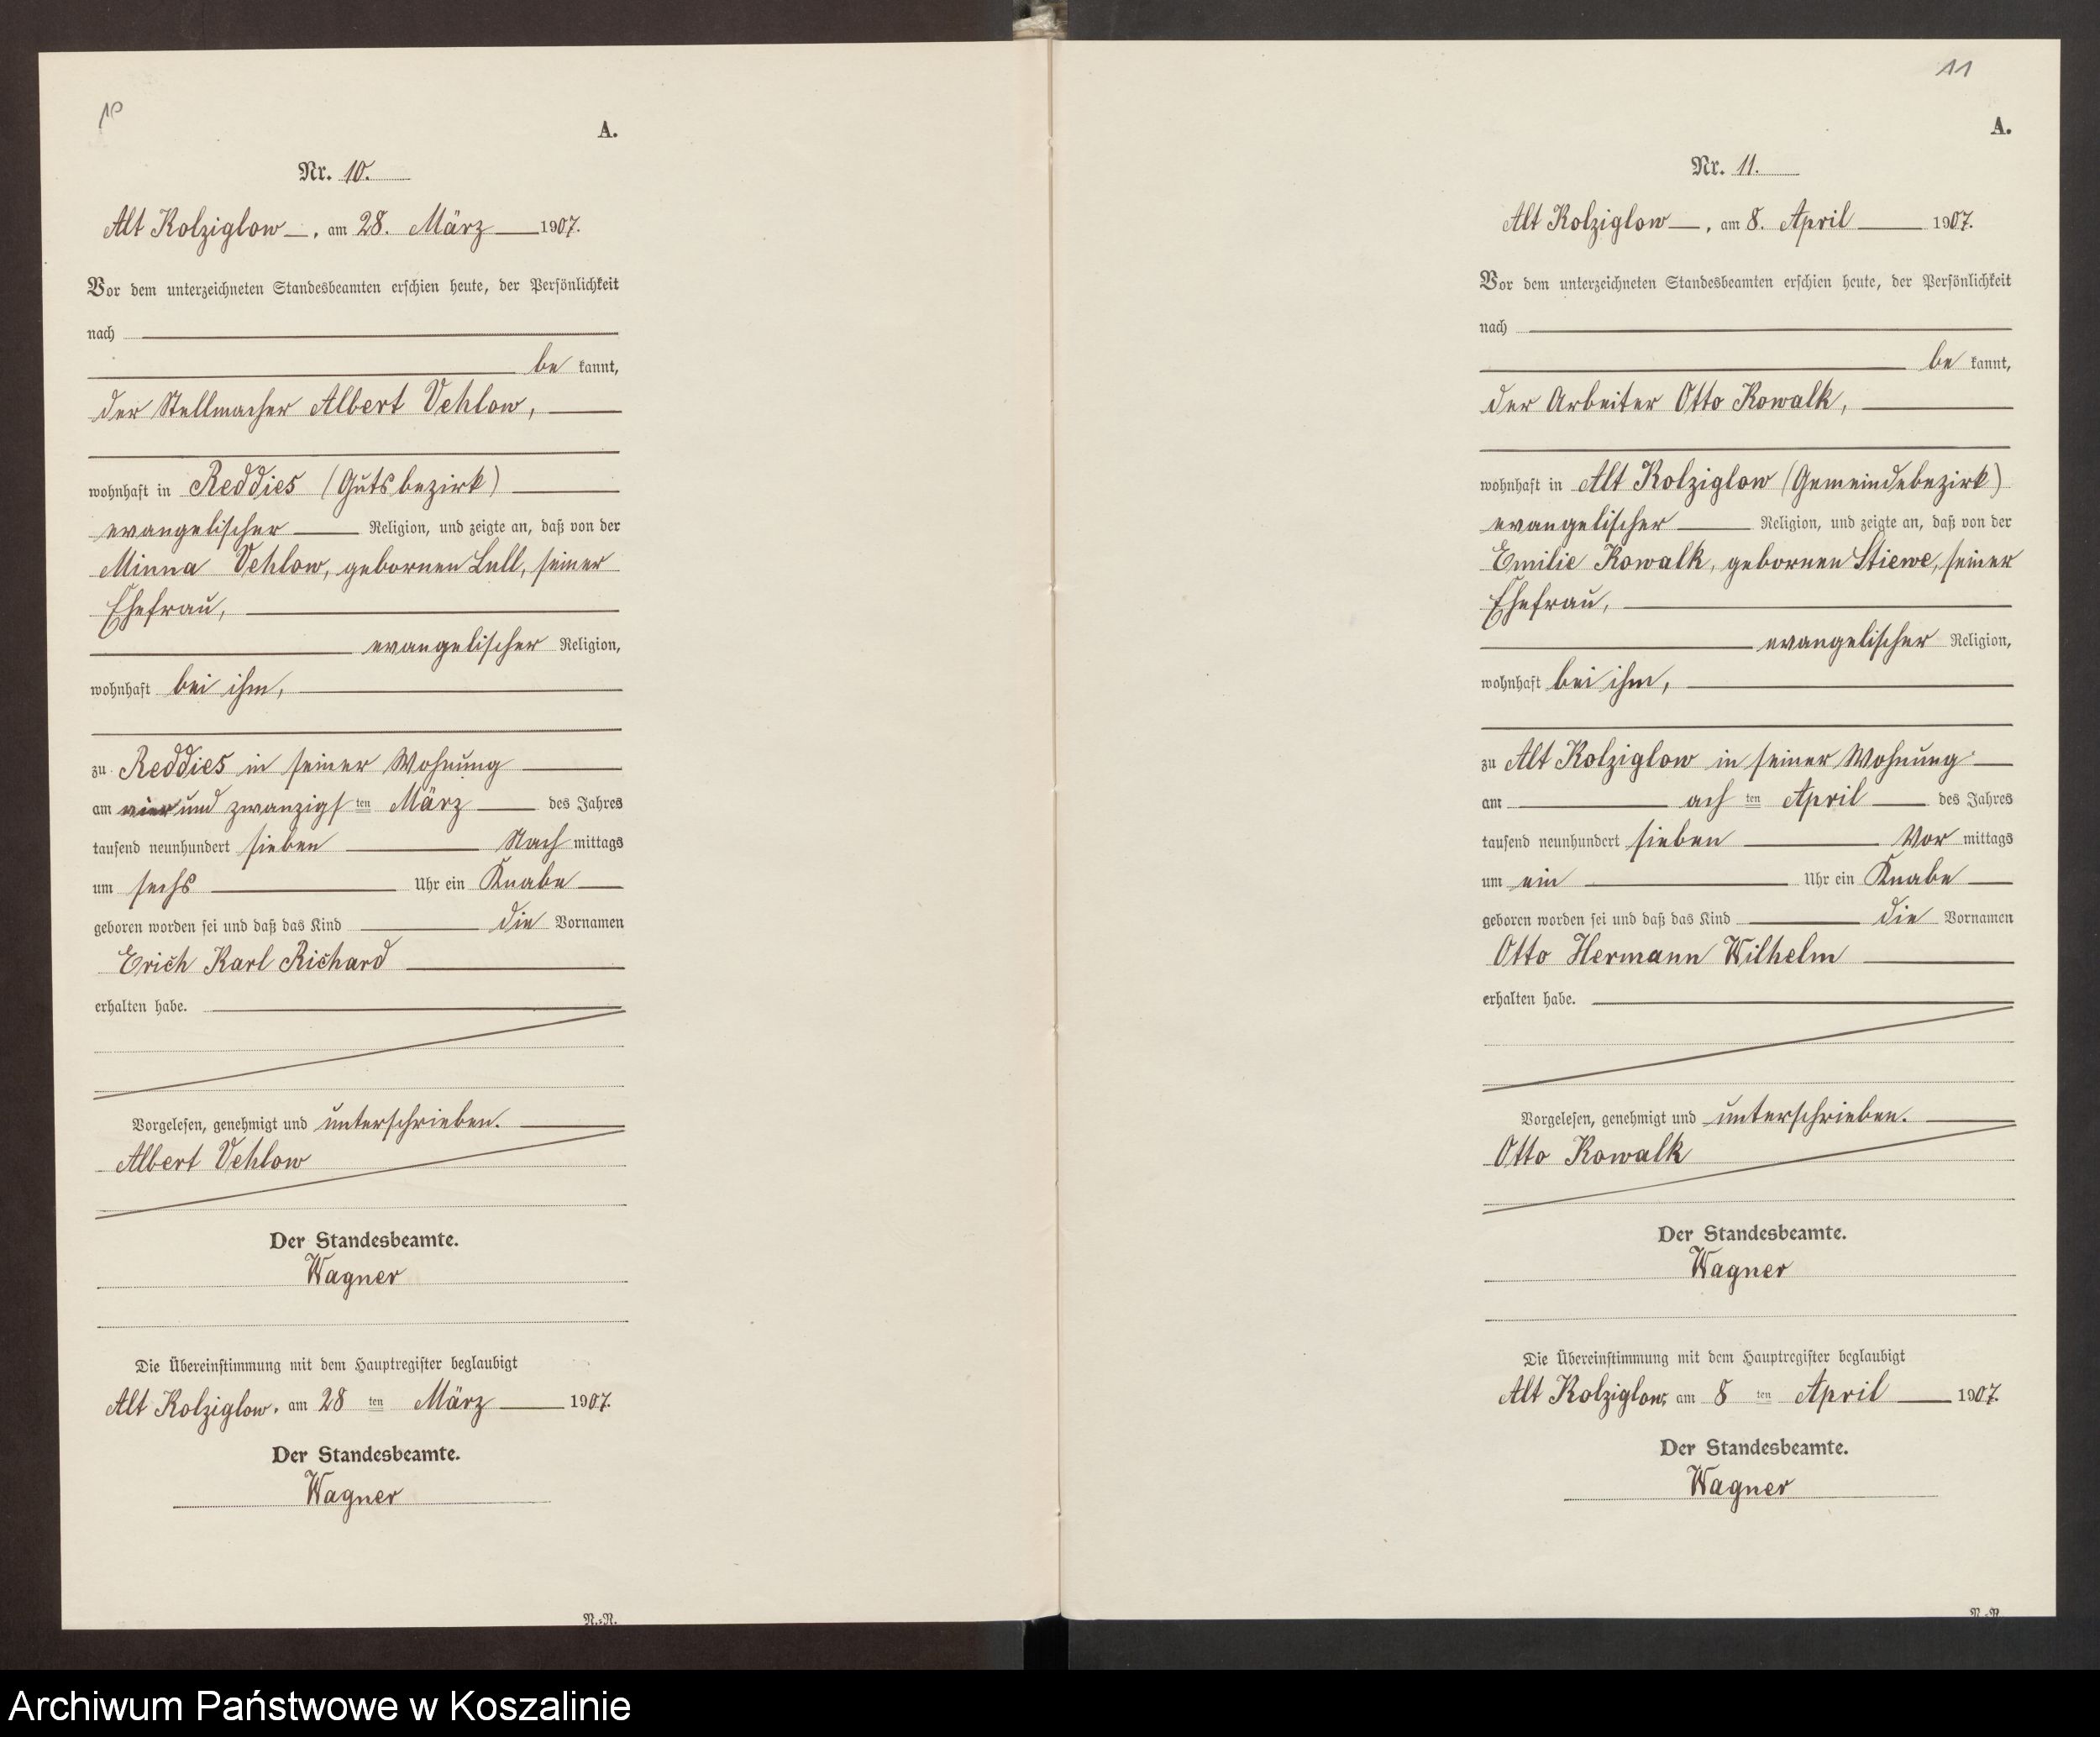 10
A.
Nr. 10.
Alt Kolziglow, am 28. März 1907.
Vor dem unterzeichneten Standesbeamten erschien heute, der Persönlichkeit
nach
be kannt,
der Stellmacher Albert Vehlow,
wohnhaft in Reddies (Gutsbezirk)
evangelischer Religion, und zeigte an, daß von der
Minna Vehlow, gebornen Lull, seiner
Ehefrau,
evangelischer Religion,
wohnhaft bei ihm,
zu Reddies in seiner Wohnung
am vierundzwanzigsten März des Jahres
tausend neunhundert sieben Nachmittags
um sechs Uhr ein Knabe
geboren worden sei und daß das Kind die Vornamen
Erich Karl Richard
erhalten habe.
Vorgelesen, genehmigt und unterschrieben.
Albert Vehlow
Der Standesbeamte.
Wagner
Die Übereinstimmung mit dem Hauptregister beglaubigt
Alt Kolziglow, am 28 ten März 1907.
Der Standesbeamte.
Wagner
N.-N.
11
A.
Nr. 11.
Alt Kolziglow, am 8. April 1907.
Vor dem unterzeichneten Standesbeamten erschien heute, der Persönlichkeit
nach
be kannt,
der Arbeiter Otto Kowalk,
wohnhaft in Alt Kolziglow (Gemeindebezirk)
evangelischer Religion, und zeigte an, daß von der
Emilie Kowalk, gebornen Stiewe, seiner
Ehefrau,
evangelischer Religion,
wohnhaft bei ihm,
zu Alt Kolziglow in seiner Wohnung
am achten April des Jahres
tausend neunhundert sieben Vormittags
um ein Uhr ein Knabe
geboren worden sei und daß das Kind die Vornamen
Otto Hermann Wilhelm
erhalten habe.
Vorgelesen, genehmigt und unterschrieben.
Otto Kowalk
Der Standesbeamte.
Wagner
Die Übereinstimmung mit dem Hauptregister beglaubigt
Alt Kolziglow, am 8 ten April 1907.
Der Standesbeamte.
Wagner
N.-N.
Archiwum Państwowe w Koszalinie